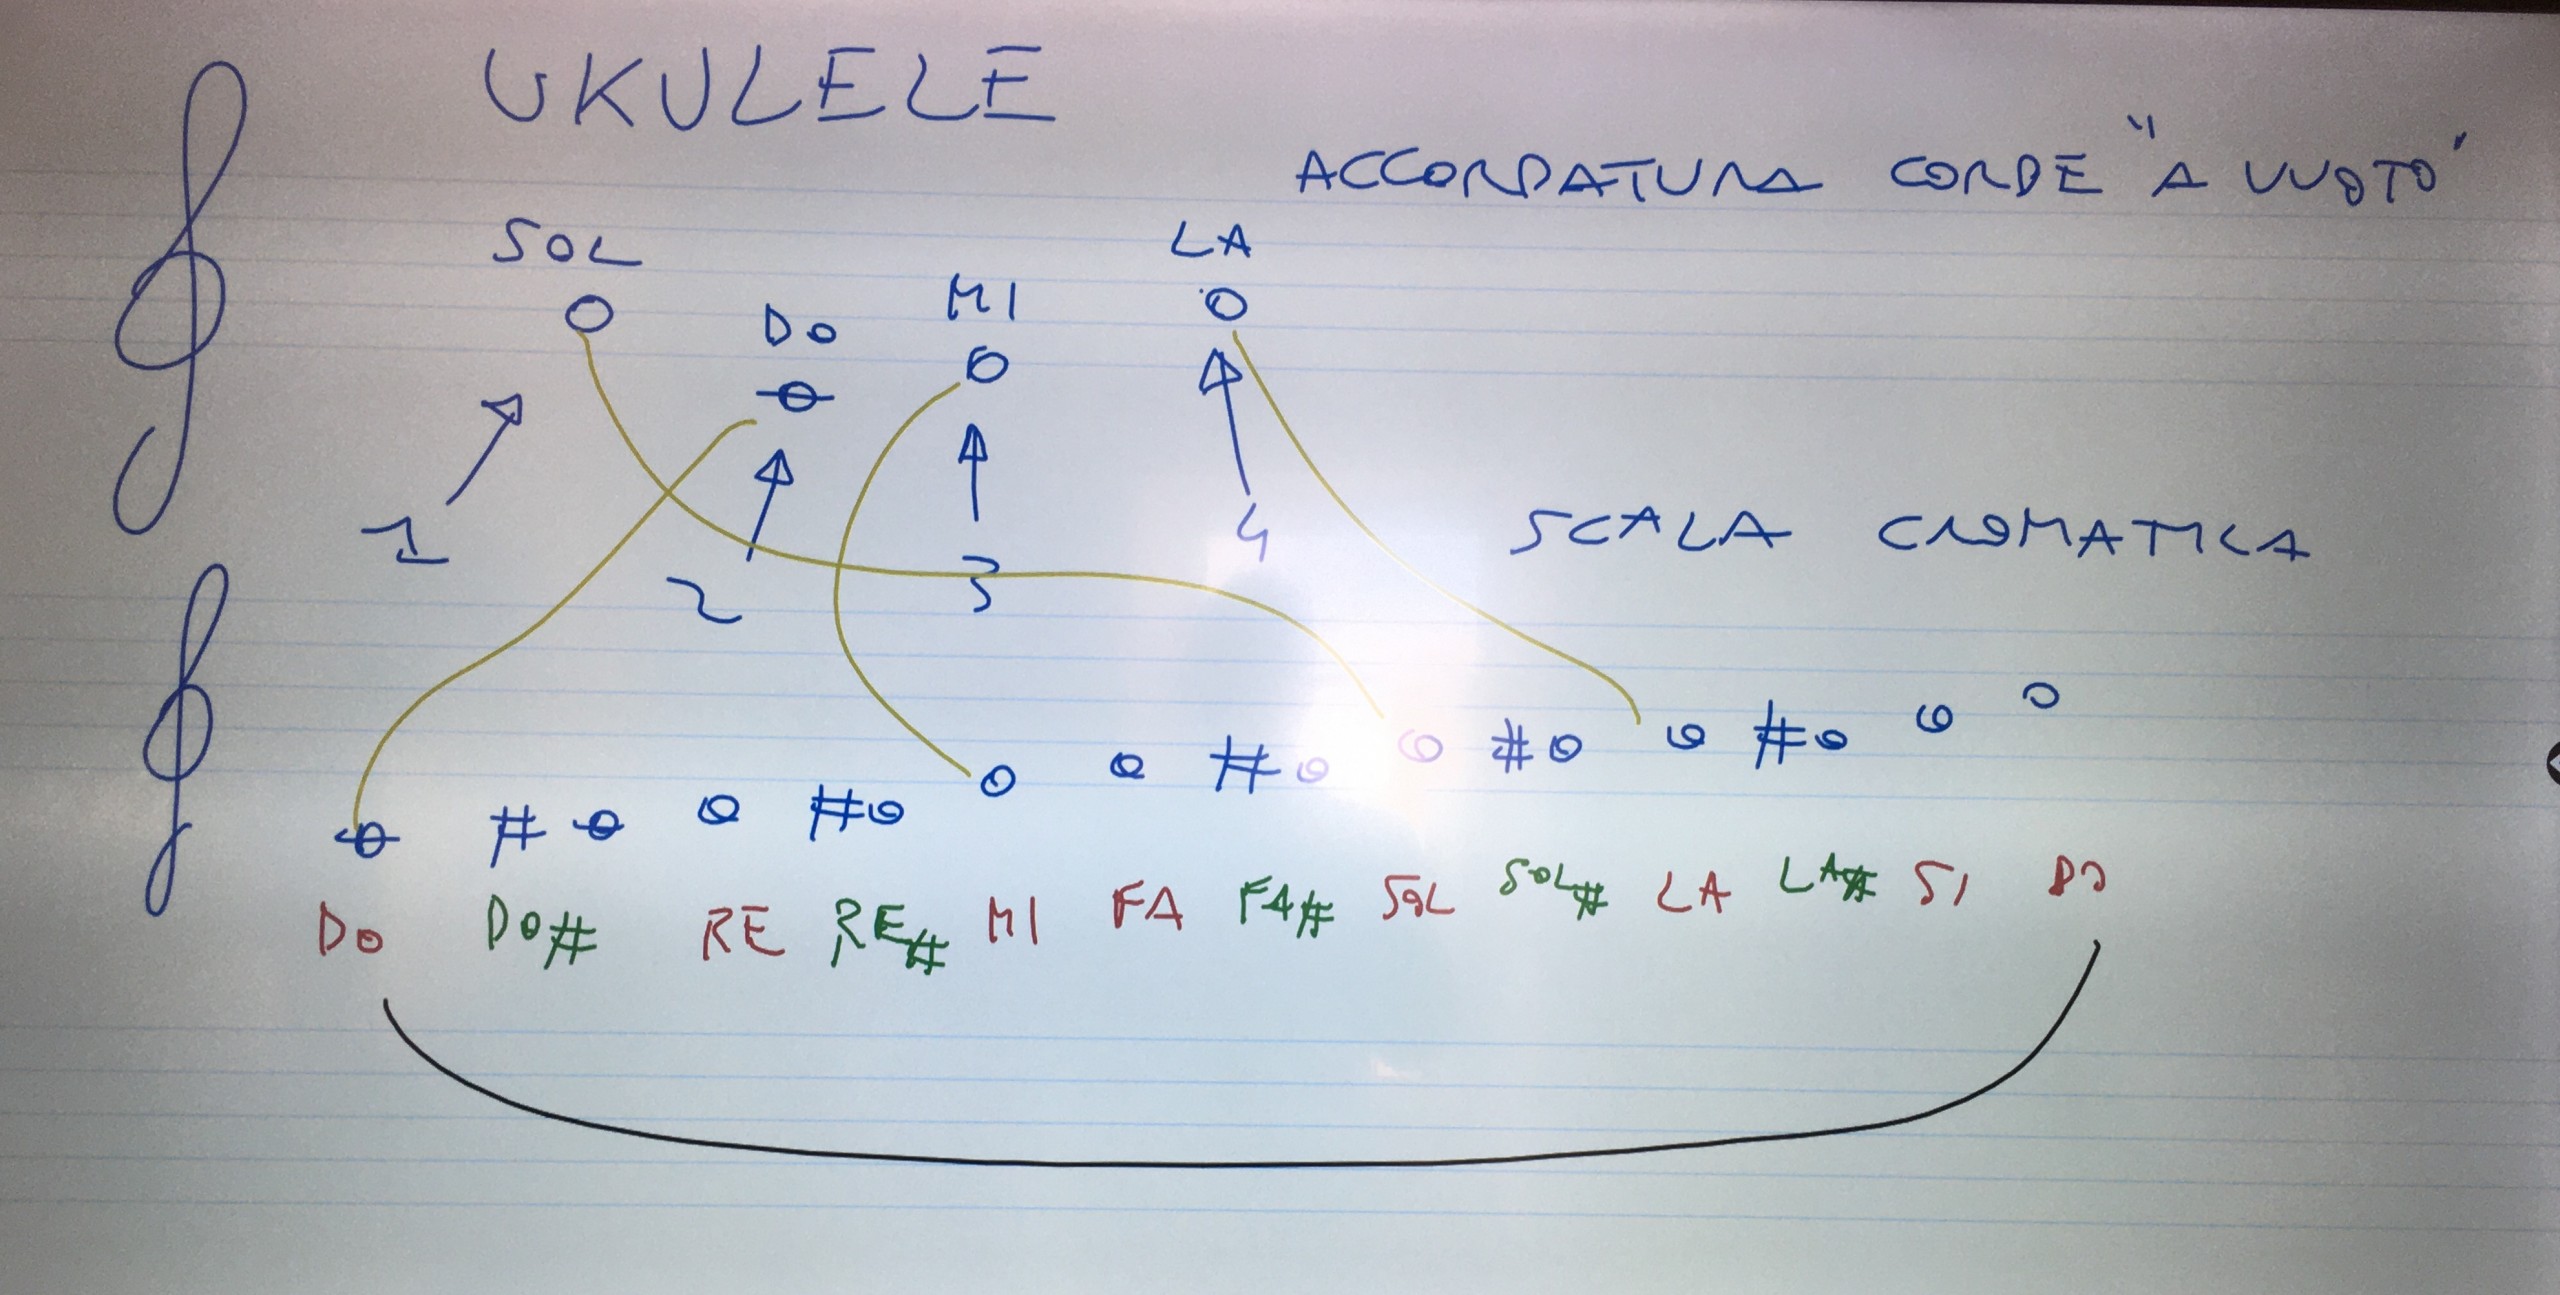 UKULELE
ACCORDATURA CORDE "A VUOTO"
SOL DO MI LA
1 2 3 4
SCALA CROMATICA
# # # # #
DO DO# RE RE# MI FA FA# SOL SOL# LA LA# SI DO